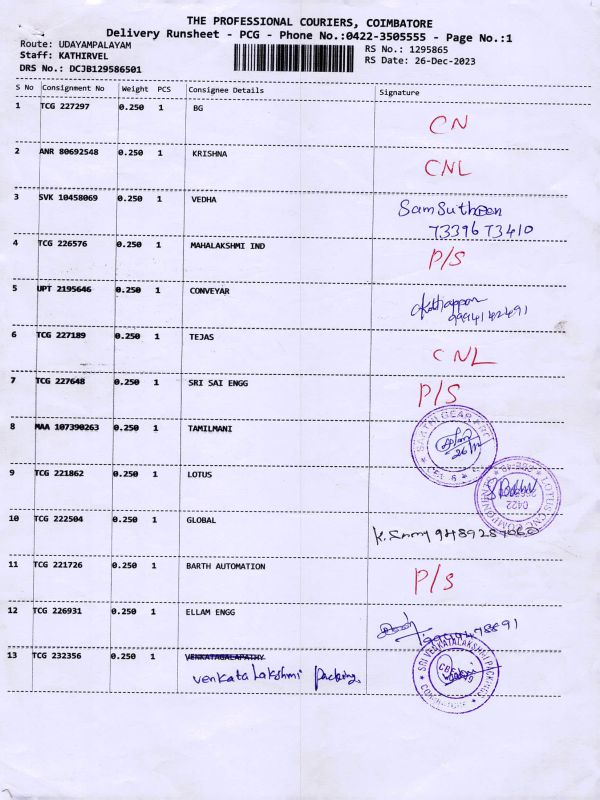 THE PROFESSIONAL COURIERS, COIMBATORE
Delivery Runsheet - PCG - Phone No.:0422-3505555 - Page No.:1
Route: UDAYAMPALAYAM RS No.: 1295865
Staff: KATHIRVEL RS Date: 26-Dec-2023
DRS No.: DCJB129586501
S No Consignment No Weight PCS Consignee Details Signature
1 TCG 227297 0.250 1 BG CN
2 ANR 80692548 0.250 1 KRISHNA CNL
3 SVK 10458069 0.250 1 VEDHA
7339673410
4 TCG 226576 0.250 1 MAHALAKSHMI IND P/S
5 UPT 2195646 0.250 1 CONVEYAR
6 TCG 227189 0.250 1 TEJAS CNL
7 TCG 227648 0.250 1 SRI SAI ENGG P/S
8 MAA 107390263 0.250 1 TAMILMANI
9 TCG 221862 0.250 1 LOTUS
LOTUS CNC COMPONENTS
0422
10 TCG 222504 0.250 1 GLOBAL
11 TCG 221726 0.250 1 BARTH AUTOMATION P/S
12 TCG 226931 0.250 1 ELLAM ENGG
13 TCG 232356 0.250 1 VENKATAGALAPATHY
Venkata Lakshmi Packing
SRI VENKATALAKSHMI PACKINGS
COIMBATORE